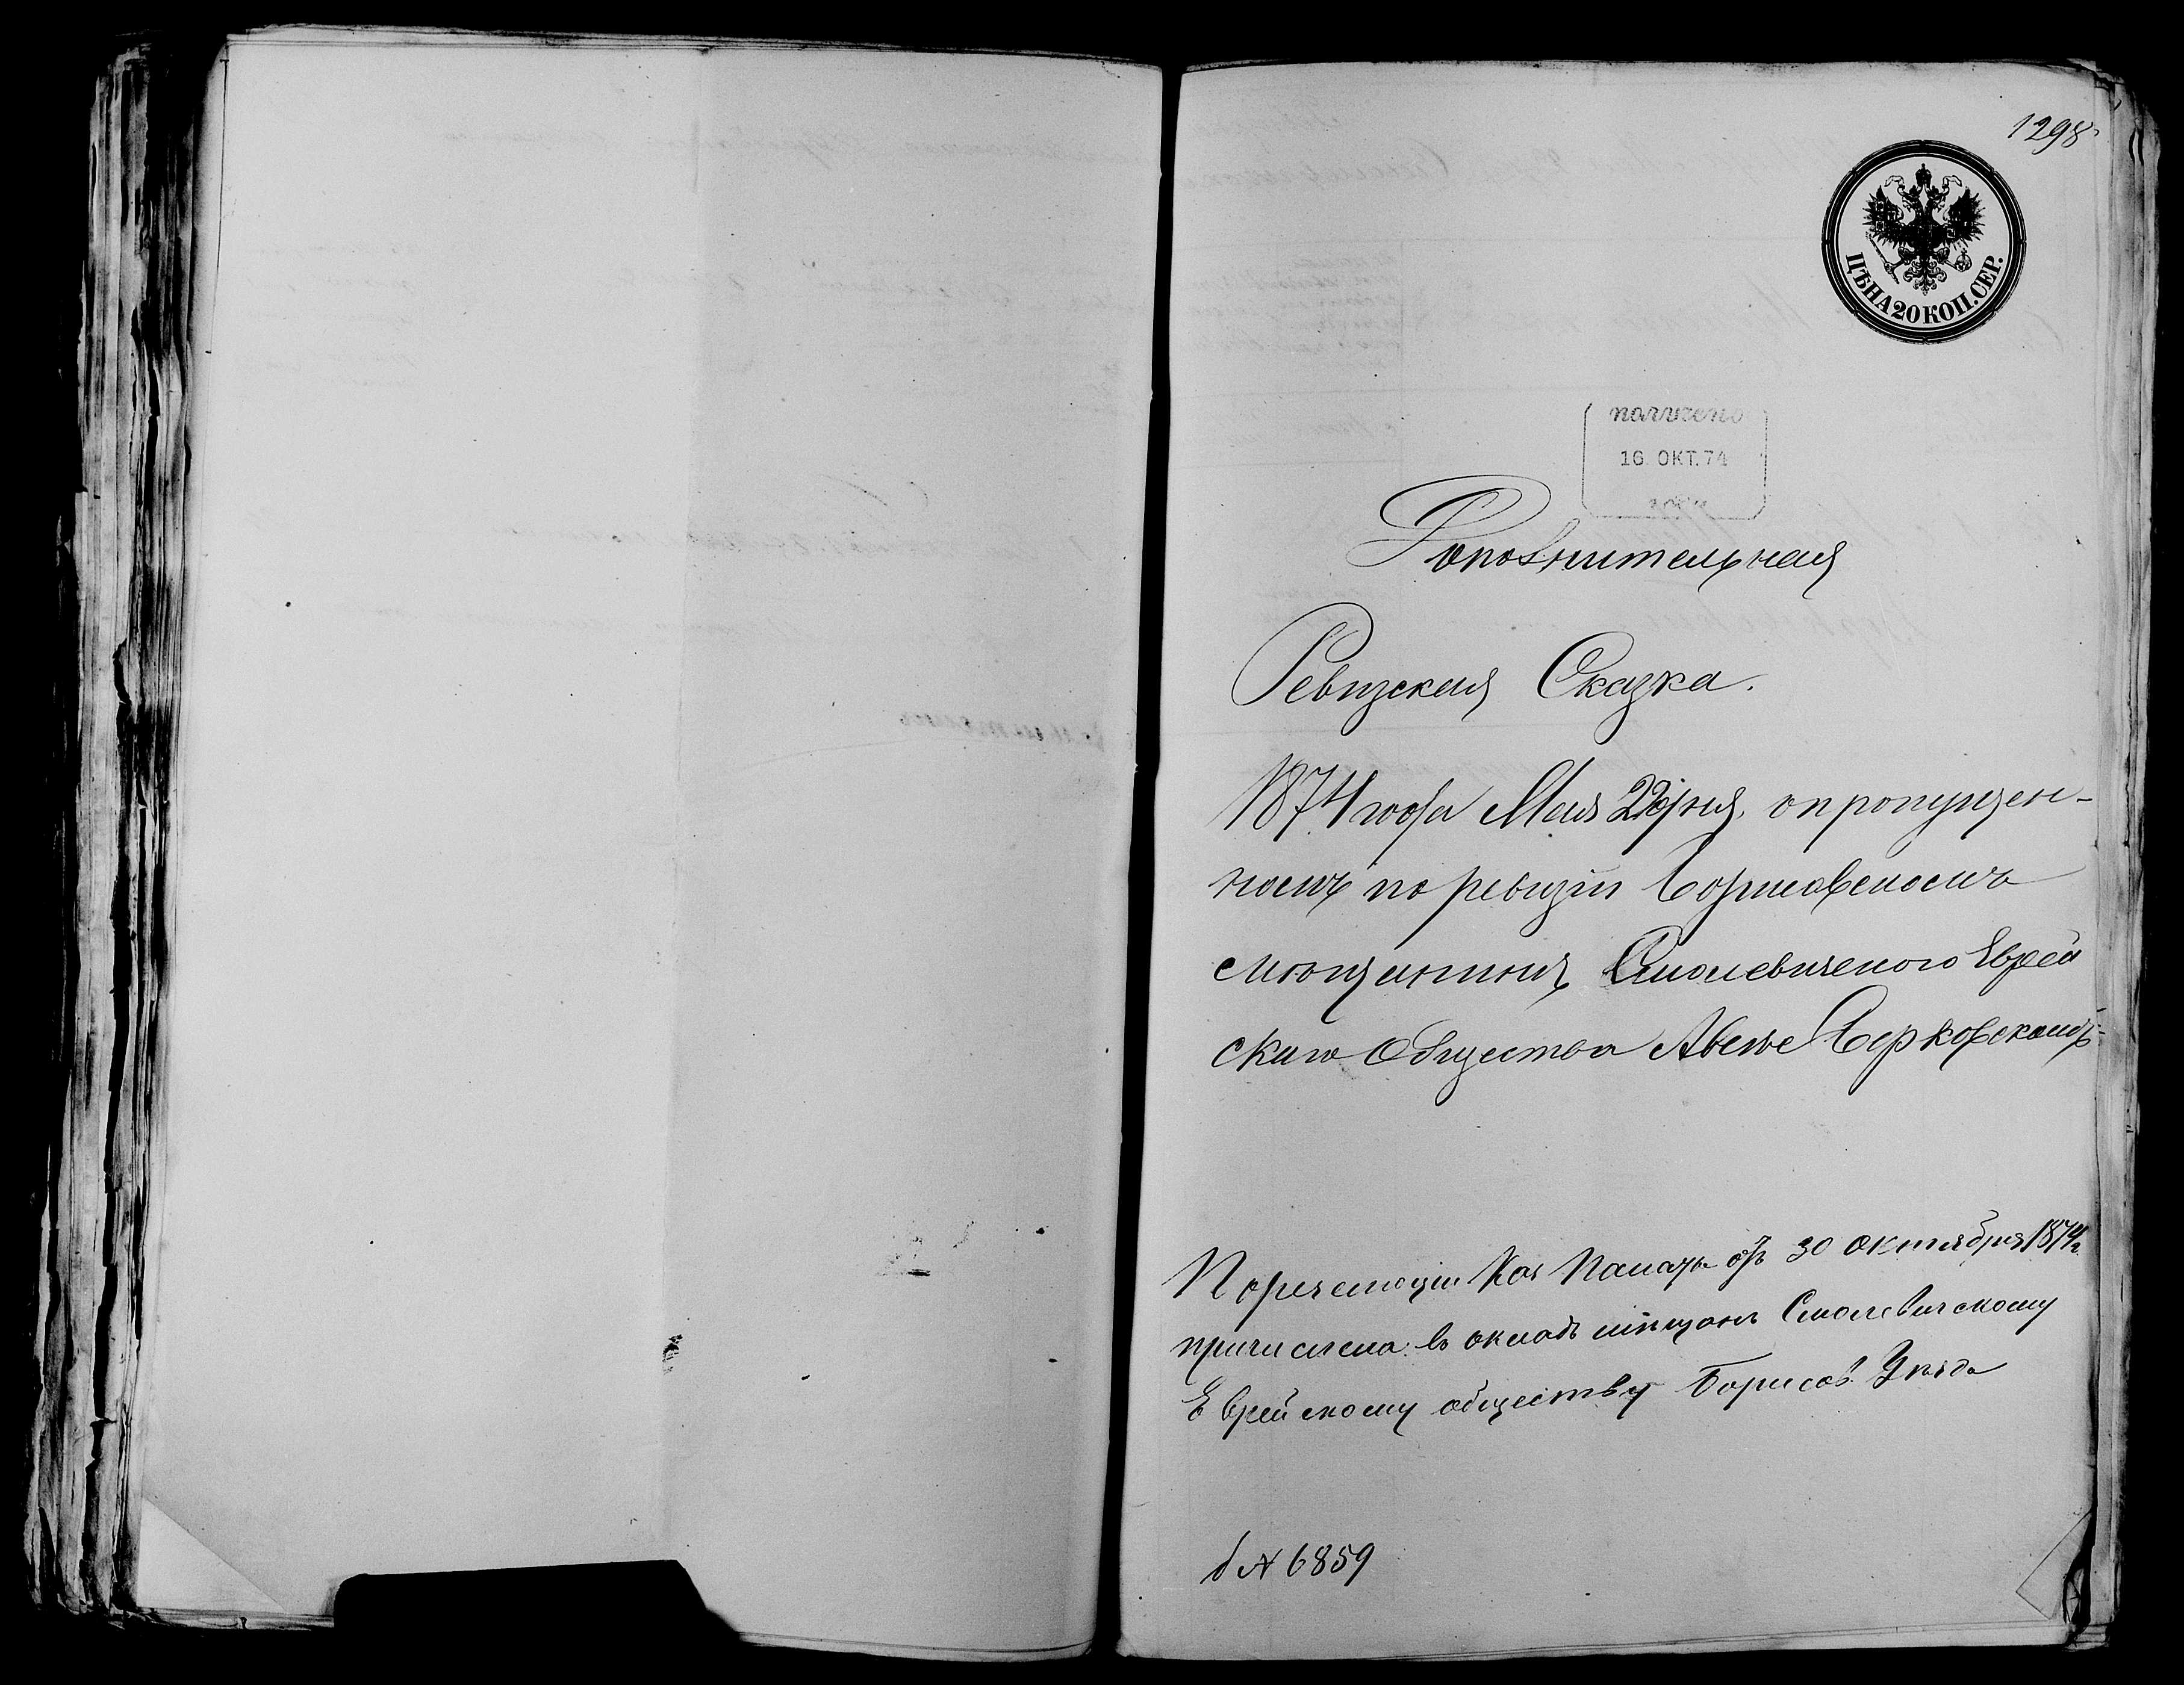 1298
ЦѢНА 20 КОП. СЕР.
получено
16 ОКТ. 74
Дополнительная
Ревизская Сказка.
1874 года Мая 22 дня, о пропущен-
номъ по ревизіи Борисовскомъ
мѣщанинѣ Смолевичскаго Еврей
скаго Общества Берковскомъ
По резолюціи Каз Палаты отъ 30 Октября 1874 г
причислена въ окладъ мѣщанъ Смолевичскому
Еврейскому обществу Борисов. Уѣзда
№ 6859